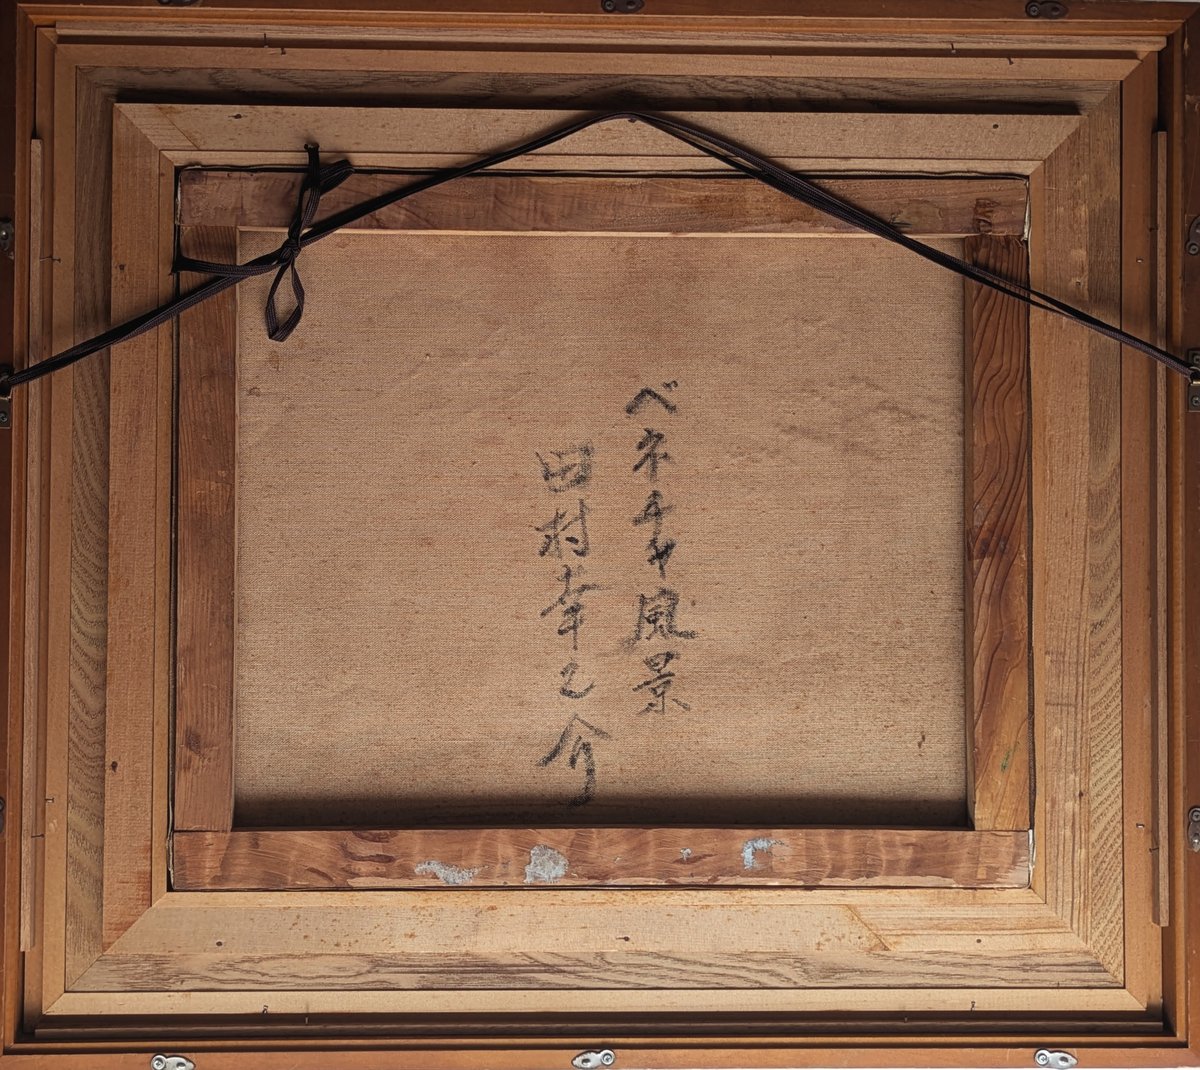 ベネチャ風景
田村孝之介